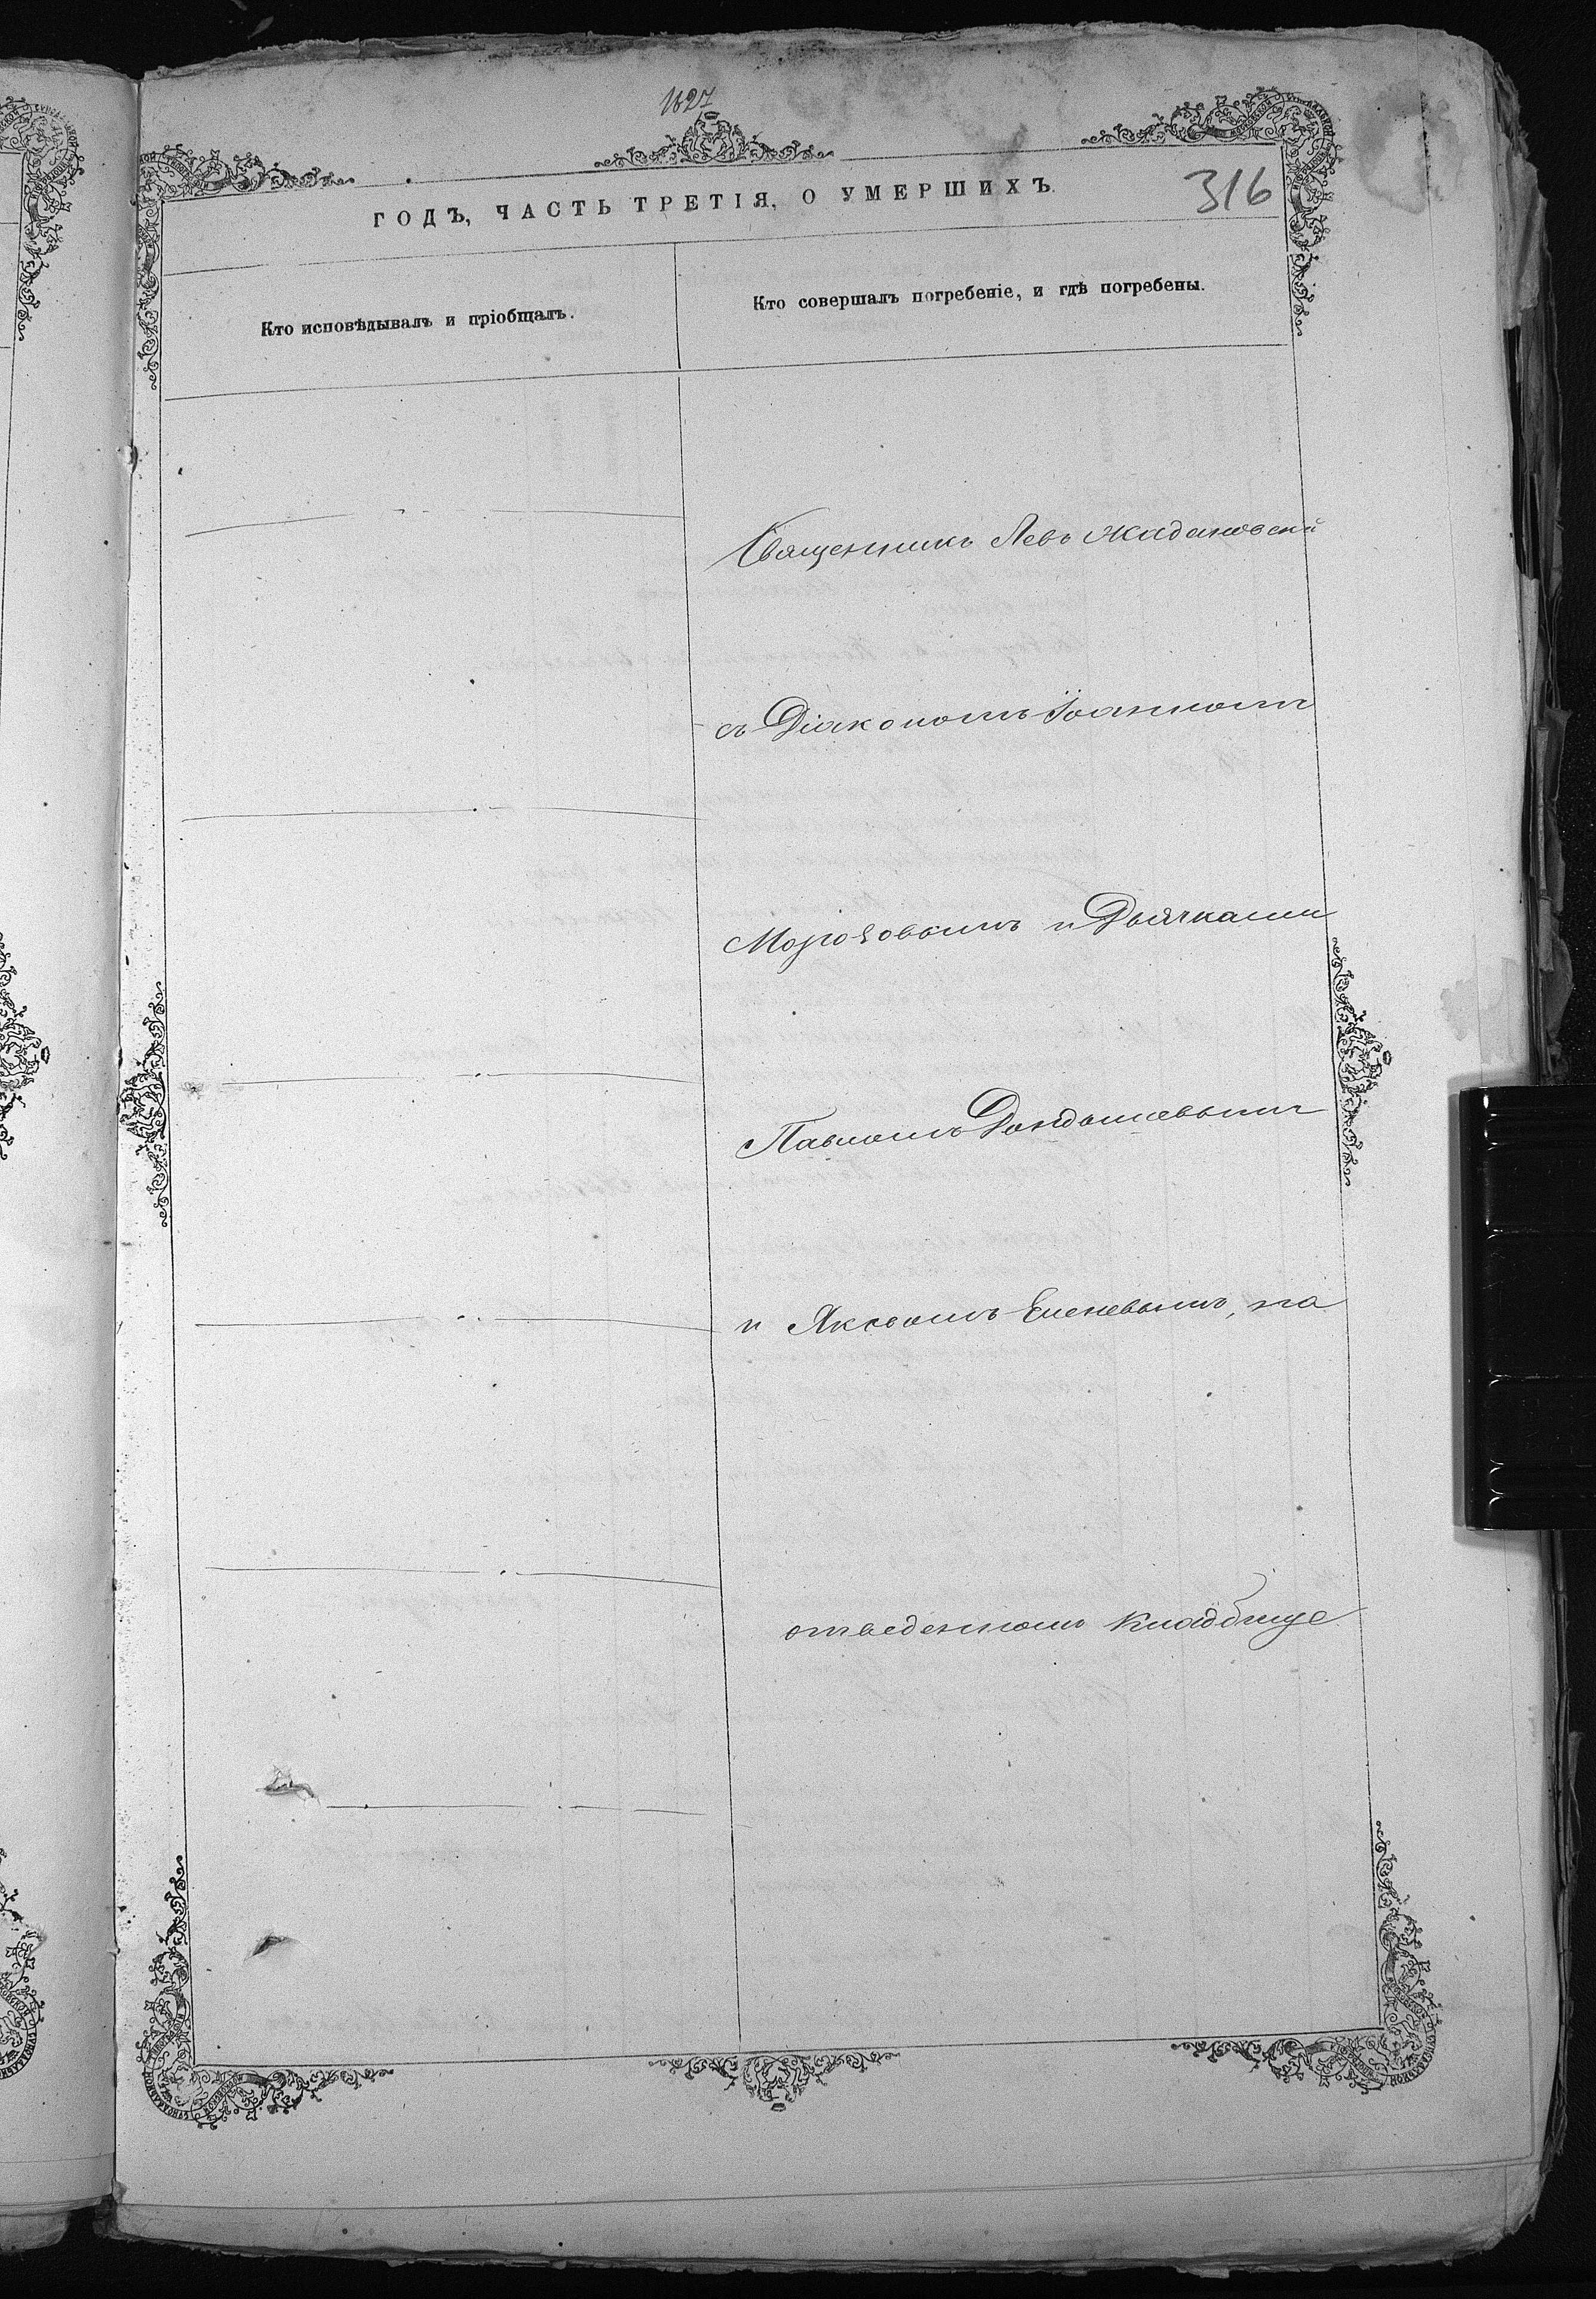 1827
316
ГОДЪ, ЧАСТЬ ТРЕТІЯ, О УМЕРШИХЪ.
Кто исповѣдывалъ и пріобщалъ.
Кто совершалъ погребеніе, и гдѣ погребены.
Священникъ Левъ Жадановскій
съ Діакономъ Іоанномъ
Морозовымъ и Дьячками
Павломъ
и Еленевымъ, на
отведенномъ кладбище